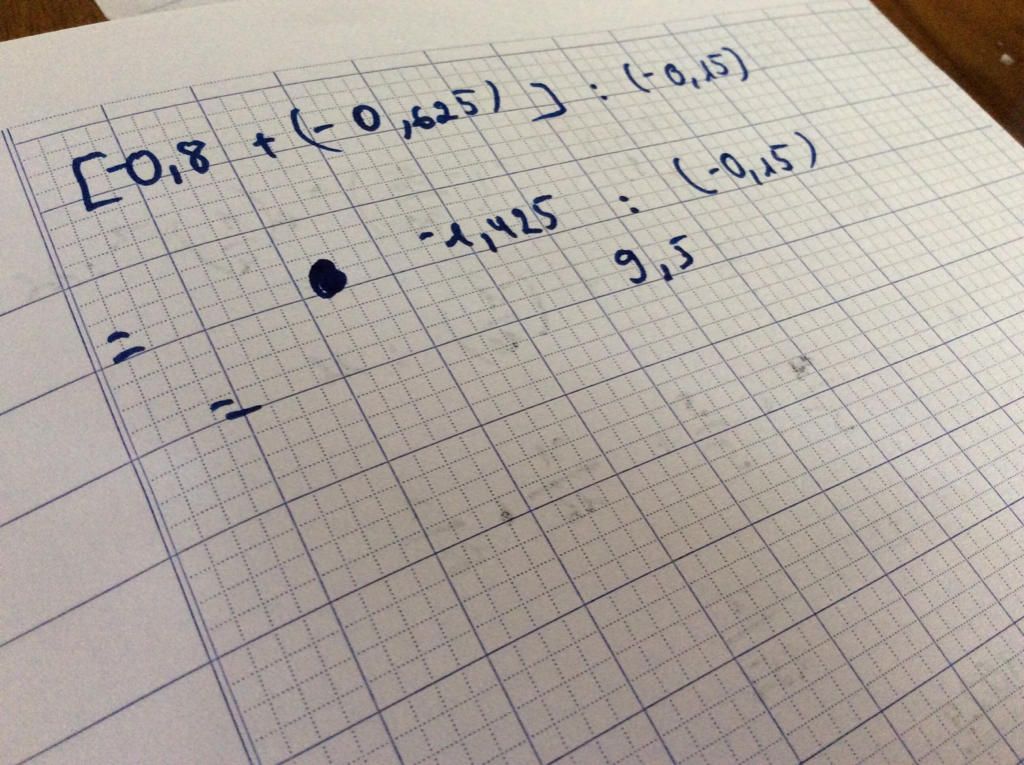 [-0,8 + (-0,625)] : (-0,15)
= -1,425 : (-0,15)
= 9,5